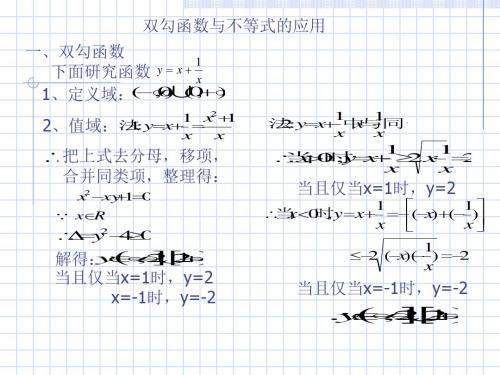 双勾函数与不等式的应用
一、双勾函数
下面研究函数 y = x + 1/x
1、定义域：(-∞,0)∪(0,+∞)
2、值域：法1: y=x+1/x=(x²+1)/x
∴把上式去分母，移项，
合并同类项，整理得：
x²-xy+1=0
∵ x∈R
∴Δ=y²-4≥0
解得：
当且仅当x=1时，y=2
x=-1时，y=-2
法2: y=x+1/x中x与1/x同
∴当x>0时y=x+1/x≥2√(x·1/x)=2
当且仅当x=1时，y=2
∴当x<0时y=x+1/x=-[(-x)+(-1/x)]
≤-2√((-x)(-1/x))=-2
当且仅当x=-1时，y=-2